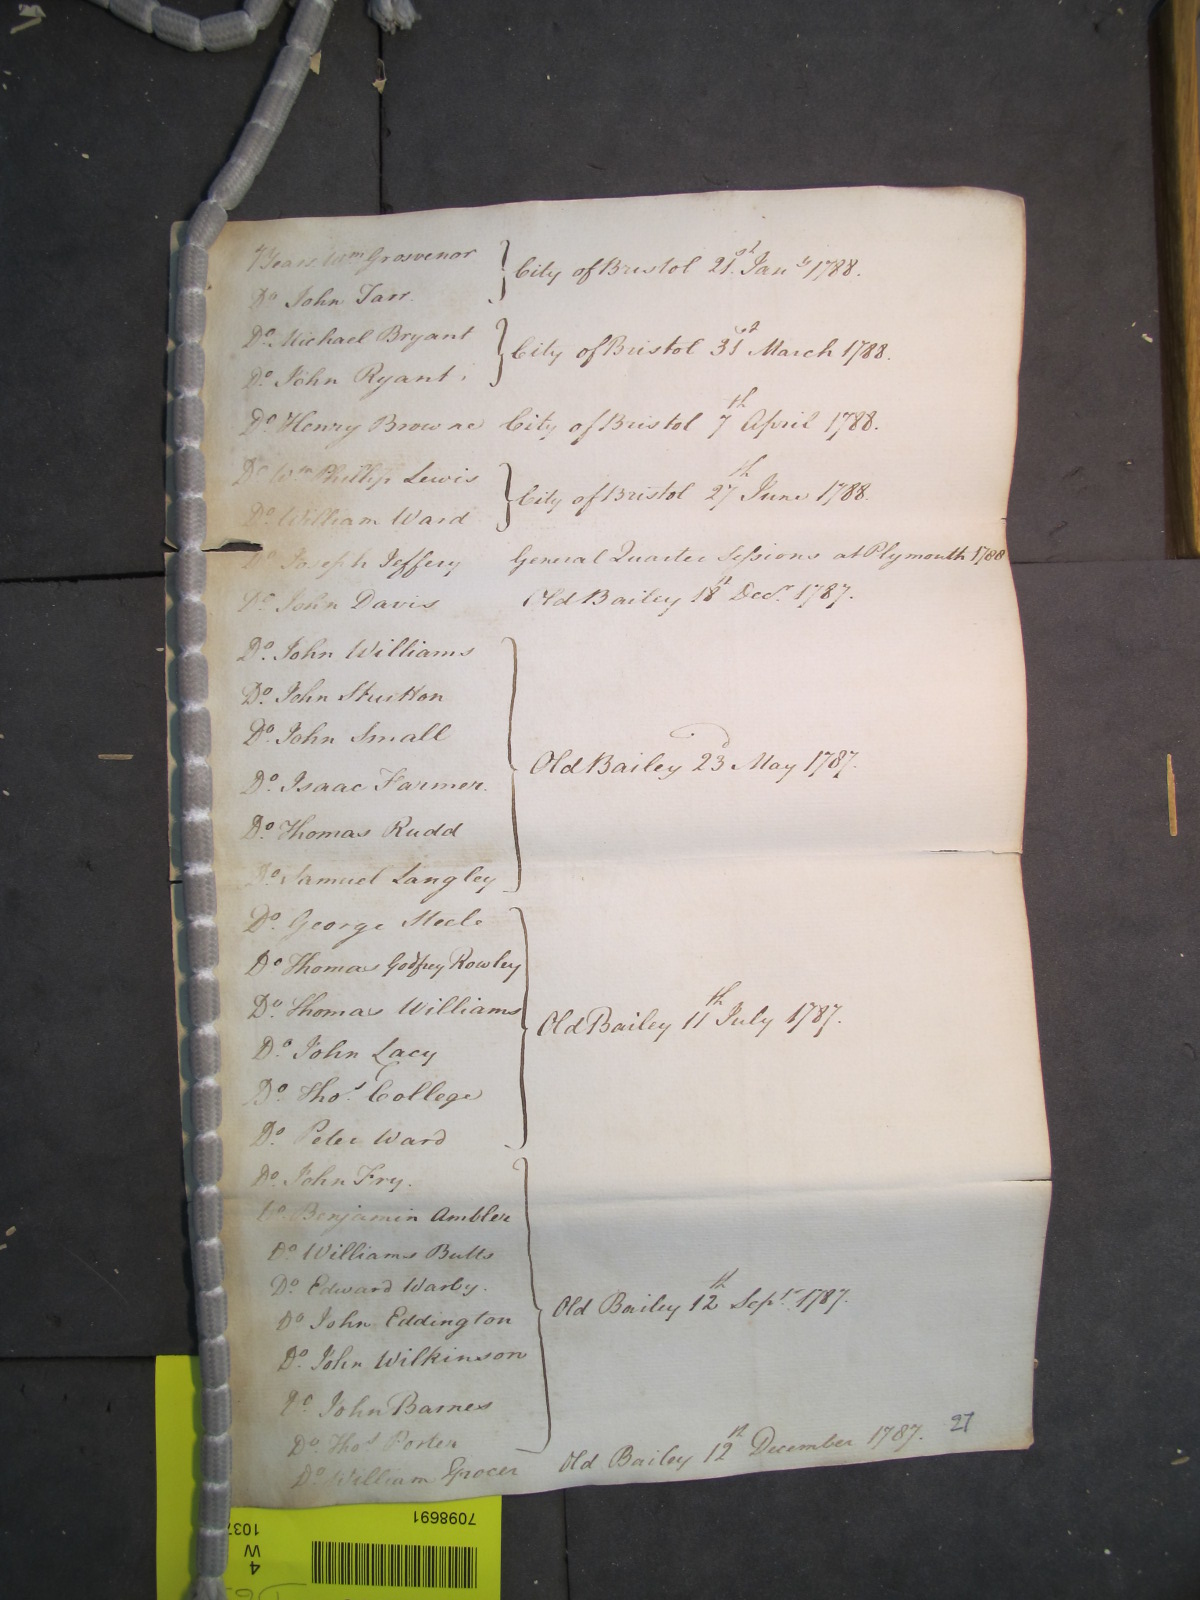 7 Years Wm Grosvenor } City of Bristol 21st Jany 1788.
Do John Tarr.
Do Michael Bryant } City of Bristol 31st March 1788.
Do John Ryant
Do Henry Browne City of Bristol 7th April 1788.
Do Wm Phillips Lewis } City of Bristol 27th June 1788.
Do William Ward
Do Joseph Jeffery General Quarter Sessions at Plymouth 1788
Do John Davis Old Bailey 18th Decr. 1787.
Do John Williams
Do John Strutton
Do John Small
Do Isaac Farmer. } Old Bailey 23d May 1787.
Do Thomas Rudd
Do Samuel Langley
Do George Steele
Do Thomas Godfrey Rowley
Do Thomas Williams } Old Bailey 11th July 1787.
Do John Lacy
Do Thos. College
Do Peter Ward
Do John Fry.
Do Benjamin Ambler
Do Williams Butts
Do Edward Warby.
Do John Eddington } Old Bailey 12th Sept. 1787.
Do John Wilkinson
Do John Barnes
Do Thos Porter
Do William Grocer Old Bailey 12th December 1787. 27
7098691
1037
W
4